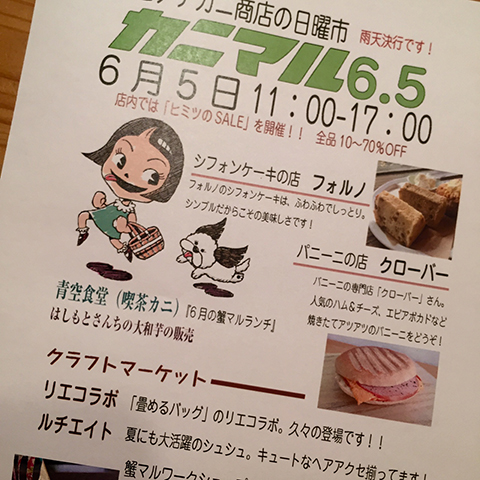 カニ商店の日曜市
雨天決行です！
カニマル6.5
6月5日11：00-17：00
店内では「ヒミツのSALE」を開催！！ 全品10～70%OFF
シフォンケーキの店 フォルノ
フォルノのシフォンケーキは、ふわふわでしっとり。
シンプルだからこその美味しさです！
パニーニの店 クローバー
パニーニの専門店「クローバー」さん。
人気のハム＆チーズ、エビアボカドなど
焼きたてアツアツのパニーニをどうぞ！
青空食堂（喫茶カニ）『6月の蟹マルランチ』
はしもとさんちの大和芋の販売
クラフトマーケット
リエコラボ 「畳めるバッグ」のリエコラボ。久々の登場です！！
ルチエイト 夏にも大活躍のシュシュ。キュートなヘアアクセ揃ってます！
蟹マルワークショップ